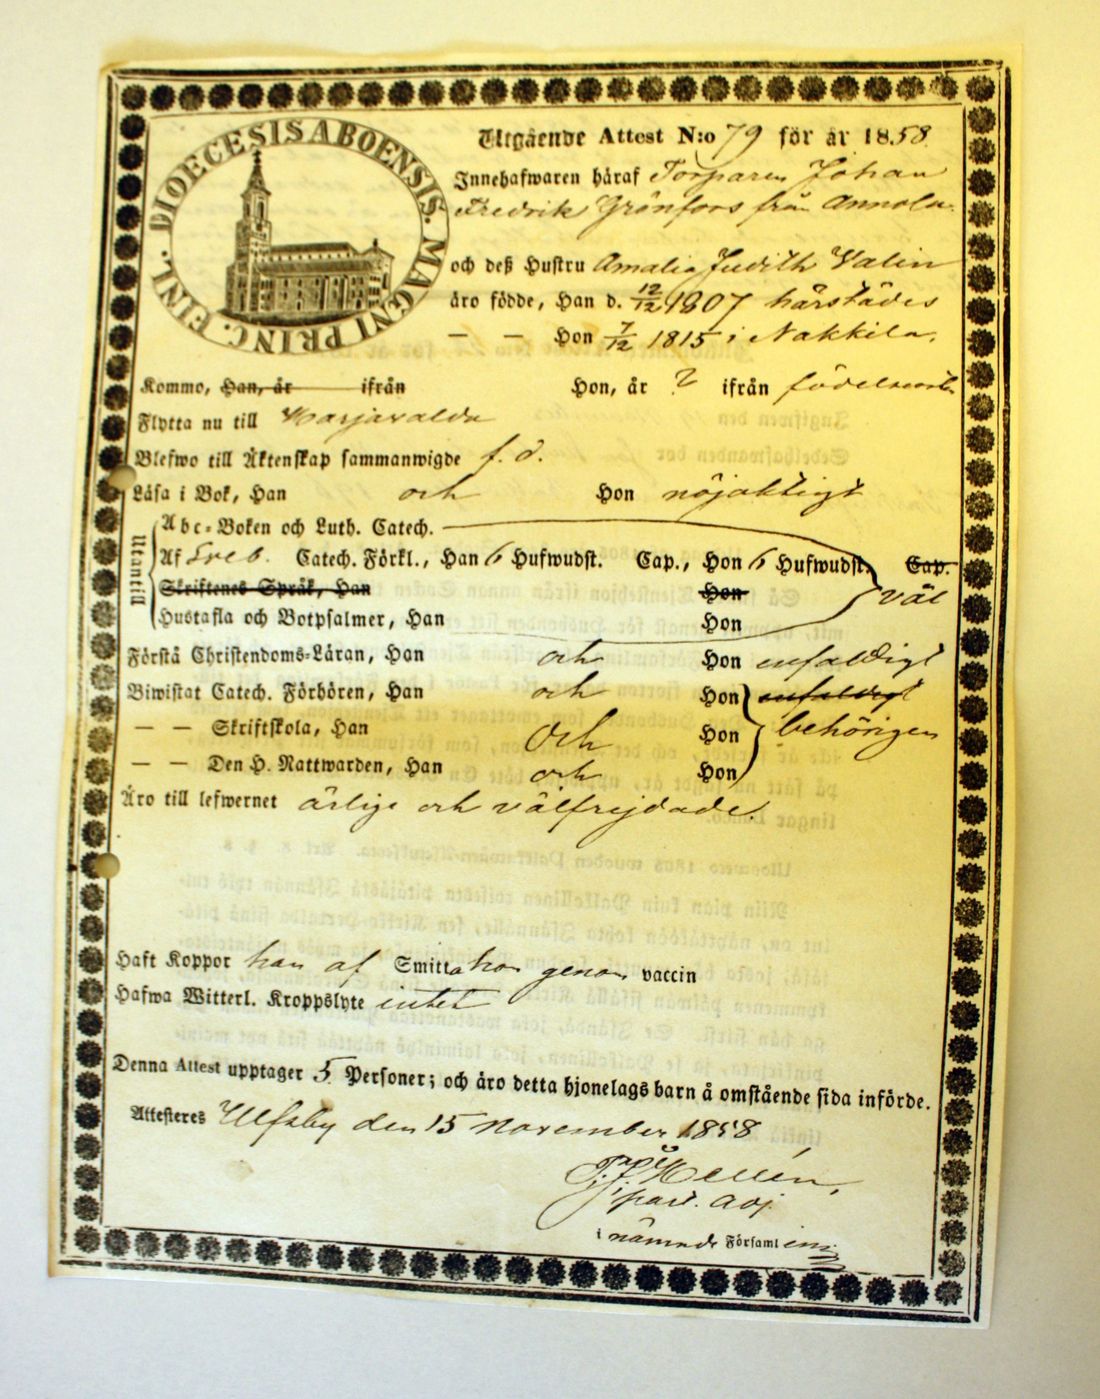 DIOECESIS ABOENSIS. MAGNI PRINC. FINL.
Utgående Attest N:o 79 för år 1858.
Innehafwaren häraf Torparen Johan
Fredrik Grönfors från Annola.
och deß Hustru Amalia Judith Valin
äro födde, Han d. 12/12 1807 härstädes
— — Hon 7/12 1815 i Nakkila.
Kommo, Han, år ifrån Hon, år ? ifrån
Flytta nu till
Blefwo till Äktenskap sammanwigde f. d.
Läsa i Bok, Han och Hon nöjaktigt
Utantill
Abc-Boken och Luth. Catech.
Af Sveb. Catech. Förkl., Han 6 Hufwudst. Cap., Hon 6 Hufwudst. Cap.
Skriftenes Språk, Han Hon väl
Hustafla och Botpsalmer, Han Hon
Förstå Christendoms-Läran, Han och Hon enfaldigt
Biwistat Catech. Förhören, Han och Hon enfaldigt
— — Skriftskola, Han och Hon behörigen
— — Den H. Nattwarden, Han och Hon
Äro till lefwernet ärlige och välfrejdade.
Haft Koppor han af Smitta hon genom vaccin
Hafwa Witterl. Kroppslyte intet
Denna Attest upptager 5 Personer; och äro detta hjonelags barn å omstående sida införde.
Attesteres Ulfsby den 15 November 1858
Hellén.
adj.
i nämnde Församl